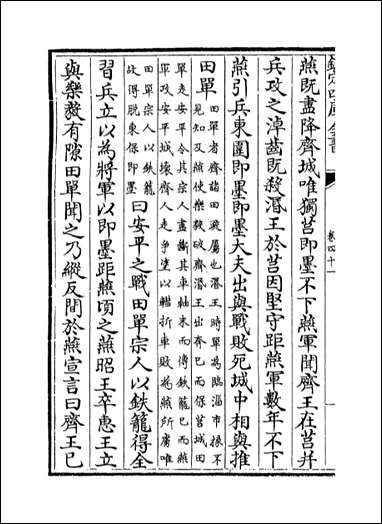 欽定四庫全書
卷四十一
燕既盡降齊城唯獨莒即墨不下燕軍聞齊王在莒并
兵攻之淖齒既殺湣王於莒因堅守距燕軍數年不下
燕引兵東圍即墨即墨大夫出與戰敗死城中相與推
田單
田單者齊諸田疏屬也湣王時單為臨淄市掾不
見知及燕使樂毅破齊湣王出奔已而保莒城田
單走安平令其宗人盡斷其車軸末而傅鐵籠已而燕
軍攻安平城壊齊人走爭塗以轊折車敗為燕所虜唯
田單宗人以鉄籠
故得脱東保即墨
曰安平之戰田單宗人以鉄籠得全
習兵立以為將軍以即墨距燕頃之燕昭王卒惠王立
與樂毅有隙田單聞之乃縱反間於燕宣言曰齊王已